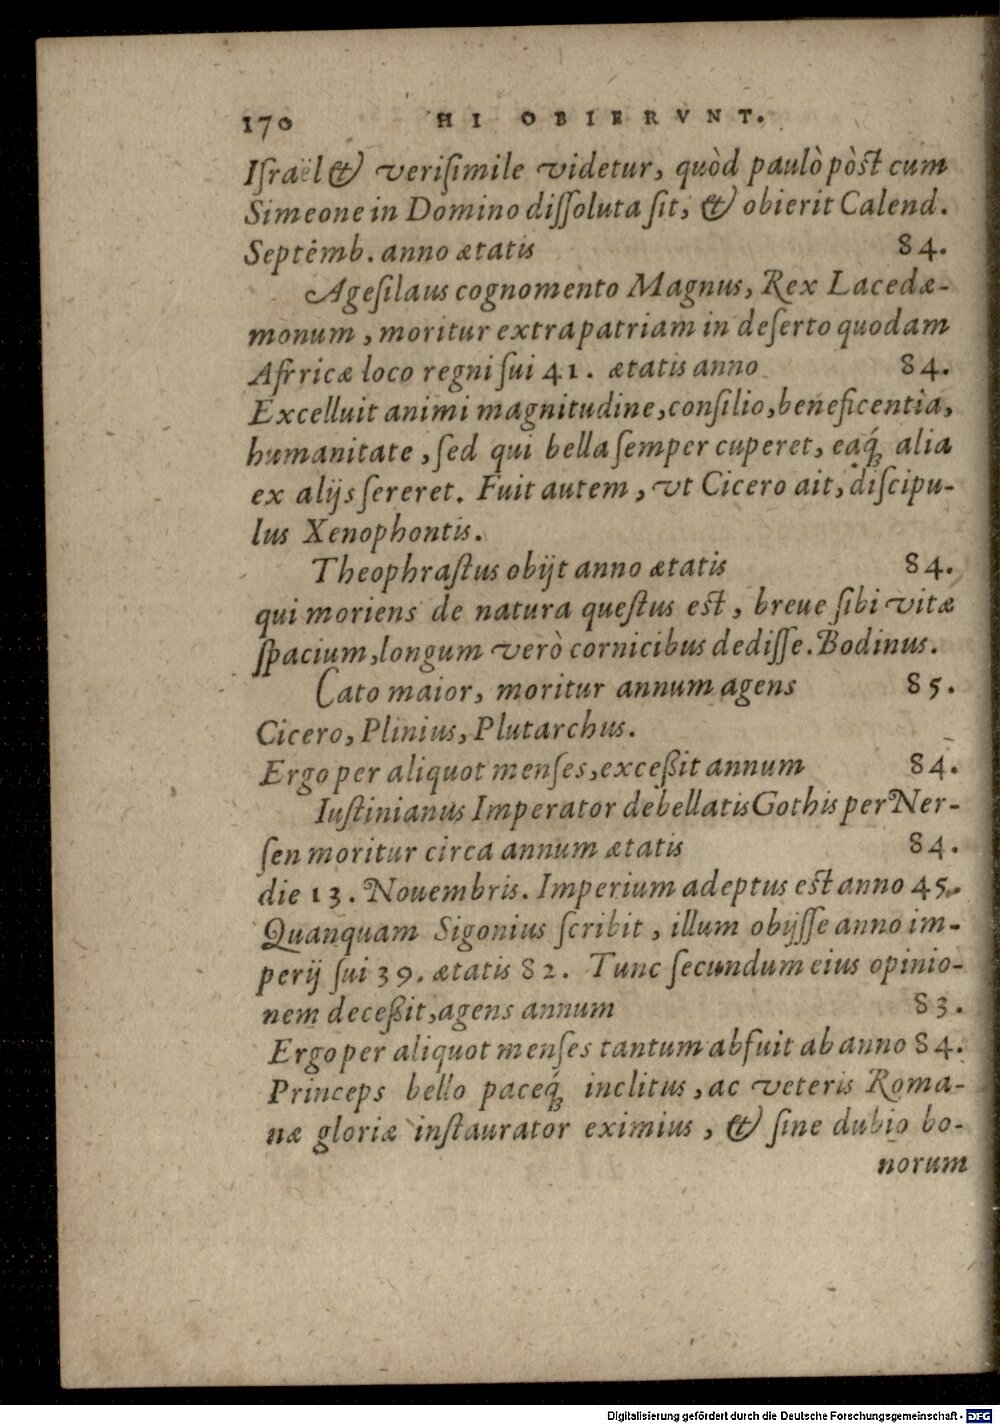 170 HI OBIERVNT.
Iſraël & veriſimile videtur, quòd paulò pòſt cum
Simeone in Domino diſſoluta ſit, & obierit Calend.
Septẽmb. anno ætatis 84.
Ageſilaus cognomento Magnus, Rex Lacedæ-
monum, moritur extra patriam in deſerto quodam
Afrricæ loco regni ſui 41. ætatis anno 84.
Excelluit animi magnitudine, conſilio, beneficentia,
humanitate, ſed qui bella ſemper cuperet, eaq́ꝫ alia
ex alijs ſereret. Fuit autem, vt Cicero ait, diſcipu-
lus Xenophontis.
Theophraſtus obijt anno ætatis 84.
qui moriens de natura queſtus eſt, breue ſibi vitæ
ſpacium, longum verò cornicibus dediſſe. Bodinus.
Cato maior, moritur annum agens 85.
Cicero, Plinius, Plutarchus.
Ergo per aliquot menſes, exceßit annum 84.
Iuſtinianus Imperator debellatis Gothis per Ner-
ſen moritur circa annum ætatis 84.
die 13. Nouembris. Imperium adeptus eſt anno 45.
Quanquam Sigonius ſcribit, illum obijſſe anno im-
perij ſui 39. ætatis 82. Tunc ſecundum eius opinio-
nem deceßit, agens annum 83.
Ergo per aliquot menſes tantum abfuit ab anno 84.
Princeps bello paceq́ꝫ inclitus, ac veteris Roma-
næ gloriæ inſtaurator eximius, & ſine dubio bo-
norum
Digitalisierung gefördert durch die Deutsche Forschungsgemeinschaft - DFG